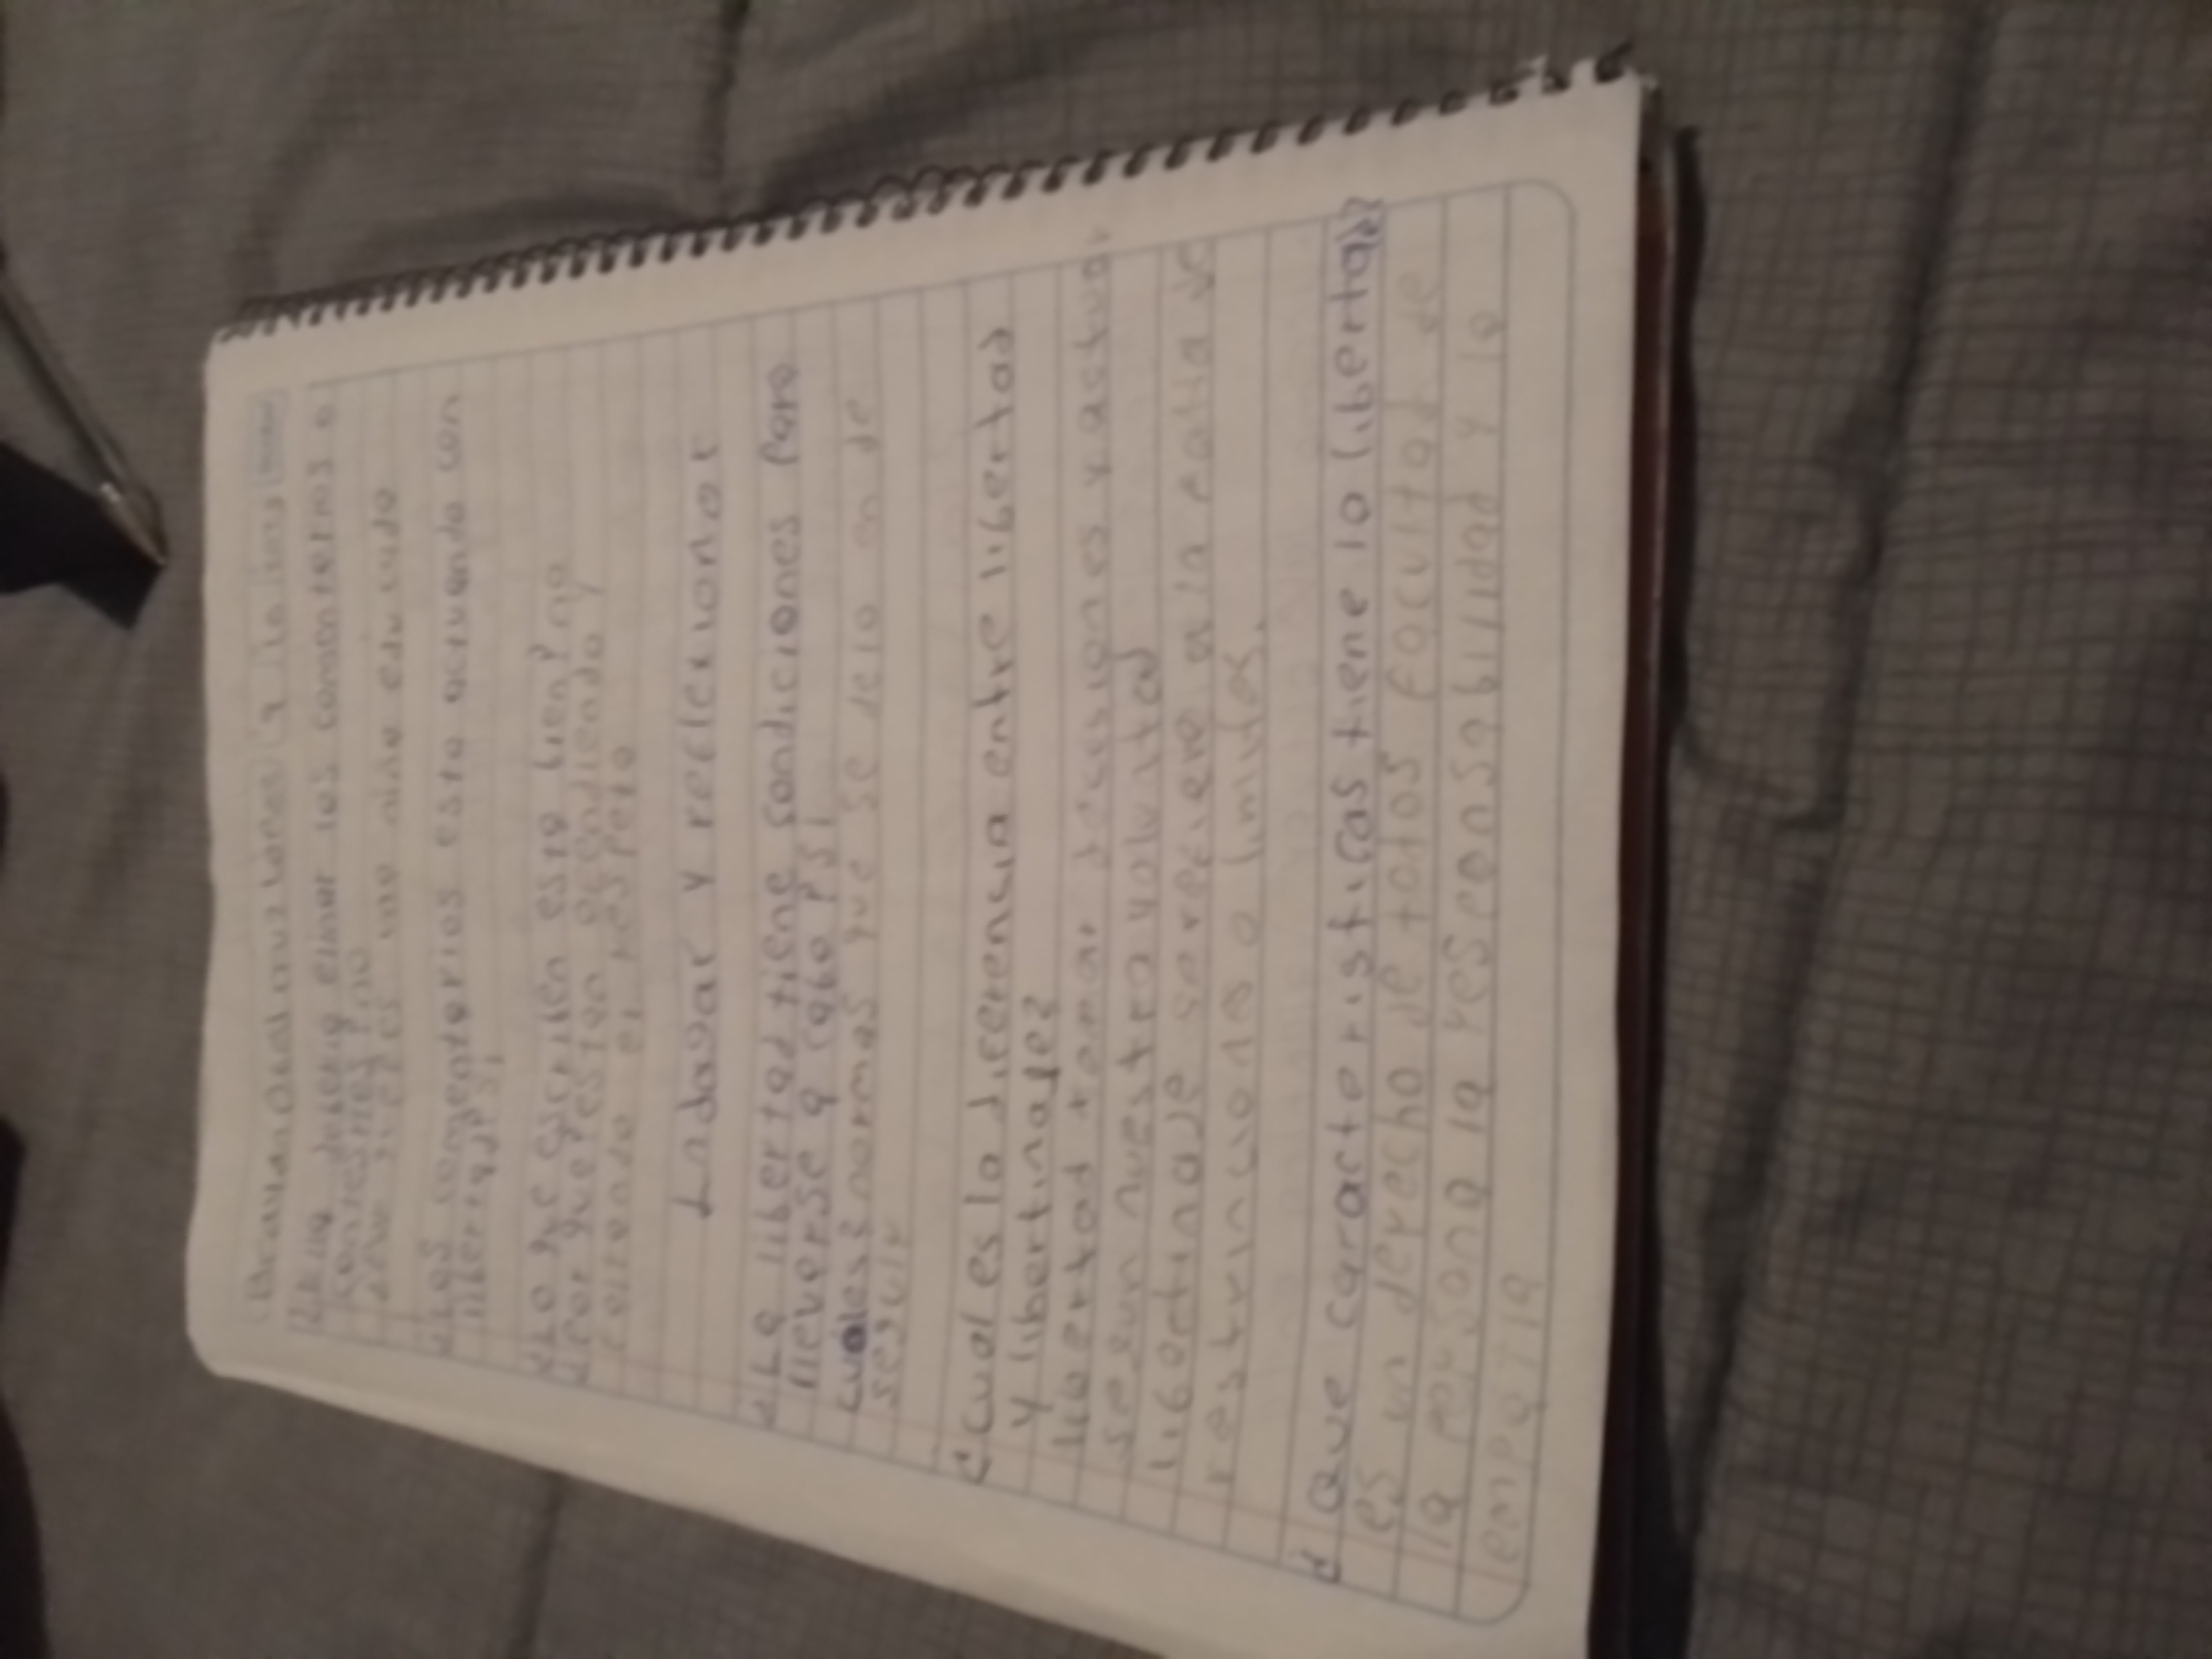 los comentarios o
contestries? no
una niña educada
Los comentarios esta actuando con
libertad? si
Lo que escriben esta bien? no
Por que? estan ofendiendo y
el respeto
Indagar y reflexionar
La libertad tiene condiciones Para
llevarse a cabo? si
cuales? normas que se de
seguir
¿Cual es la diferencia entre libertad
y libertinaje?
libertad tomar desiciones y actuar
segun nuestra voluntad
libertinaje se refiere a la falta de
restrinciones o limites.
¿Que caracteristicas tiene la libertad?
es un derecho de todos facultad de
la persona la responsabilidad y la
empatia